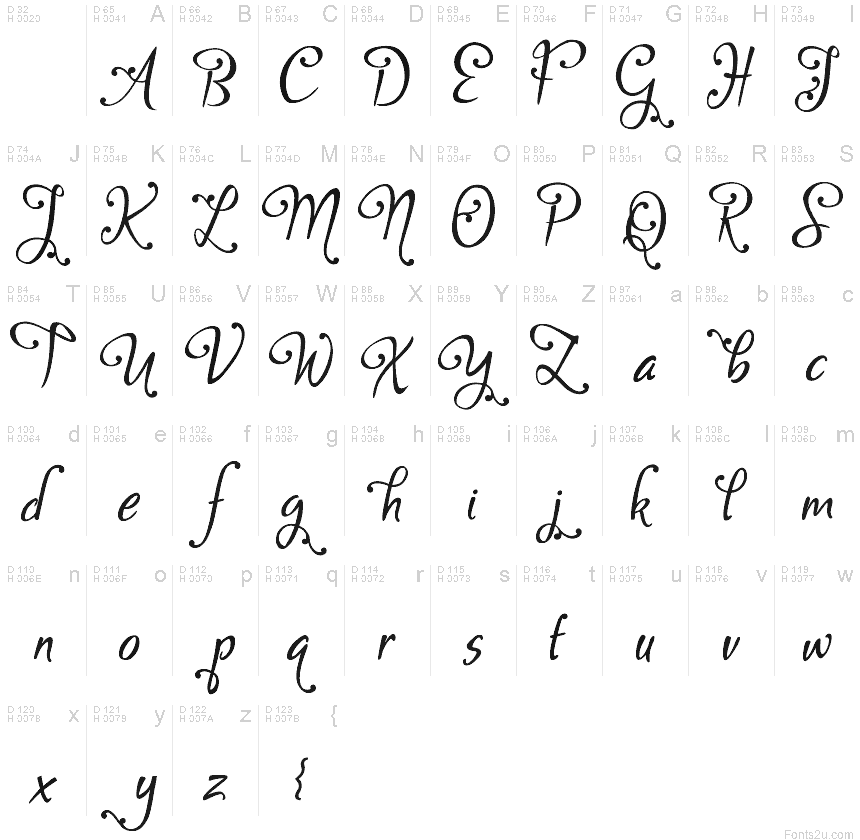 D 32 H 0020 D 65 H 0041 A D 66 H 0042 B D 67 H 0043 C D 68 H 0044 D D 69 H 0045 E D 70 H 0046 F D 71 H 0047 G D 72 H 0048 H D 73 H 0049 I
A B C D E F G H I
D 74 H 004A J D 75 H 004B K D 76 H 004C L D 77 H 004D M D 78 H 004E N D 79 H 004F O D 80 H 0050 P D 81 H 0051 Q D 82 H 0052 R D 83 H 0053 S
J K L M N O P Q R S
D 84 H 0054 T D 85 H 0055 U D 86 H 0056 V D 87 H 0057 W D 88 H 0058 X D 89 H 0059 Y D 90 H 005A Z D 97 H 0061 a D 98 H 0062 b D 99 H 0063 c
T U V W X Y Z a b c
D 100 H 0064 d D 101 H 0065 e D 102 H 0066 f D 103 H 0067 g D 104 H 0068 h D 105 H 0069 i D 106 H 006A j D 107 H 006B k D 108 H 006C l D 109 H 006D m
d e f g h i j k l m
D 110 H 006E n D 111 H 006F o D 112 H 0070 p D 113 H 0071 q D 114 H 0072 r D 115 H 0073 s D 116 H 0074 t D 117 H 0075 u D 118 H 0076 v D 119 H 0077 w
n o p q r s t u v w
D 120 H 0078 x D 121 H 0079 y D 122 H 007A z D 123 H 007B {
x y z {
Fonts2u.com